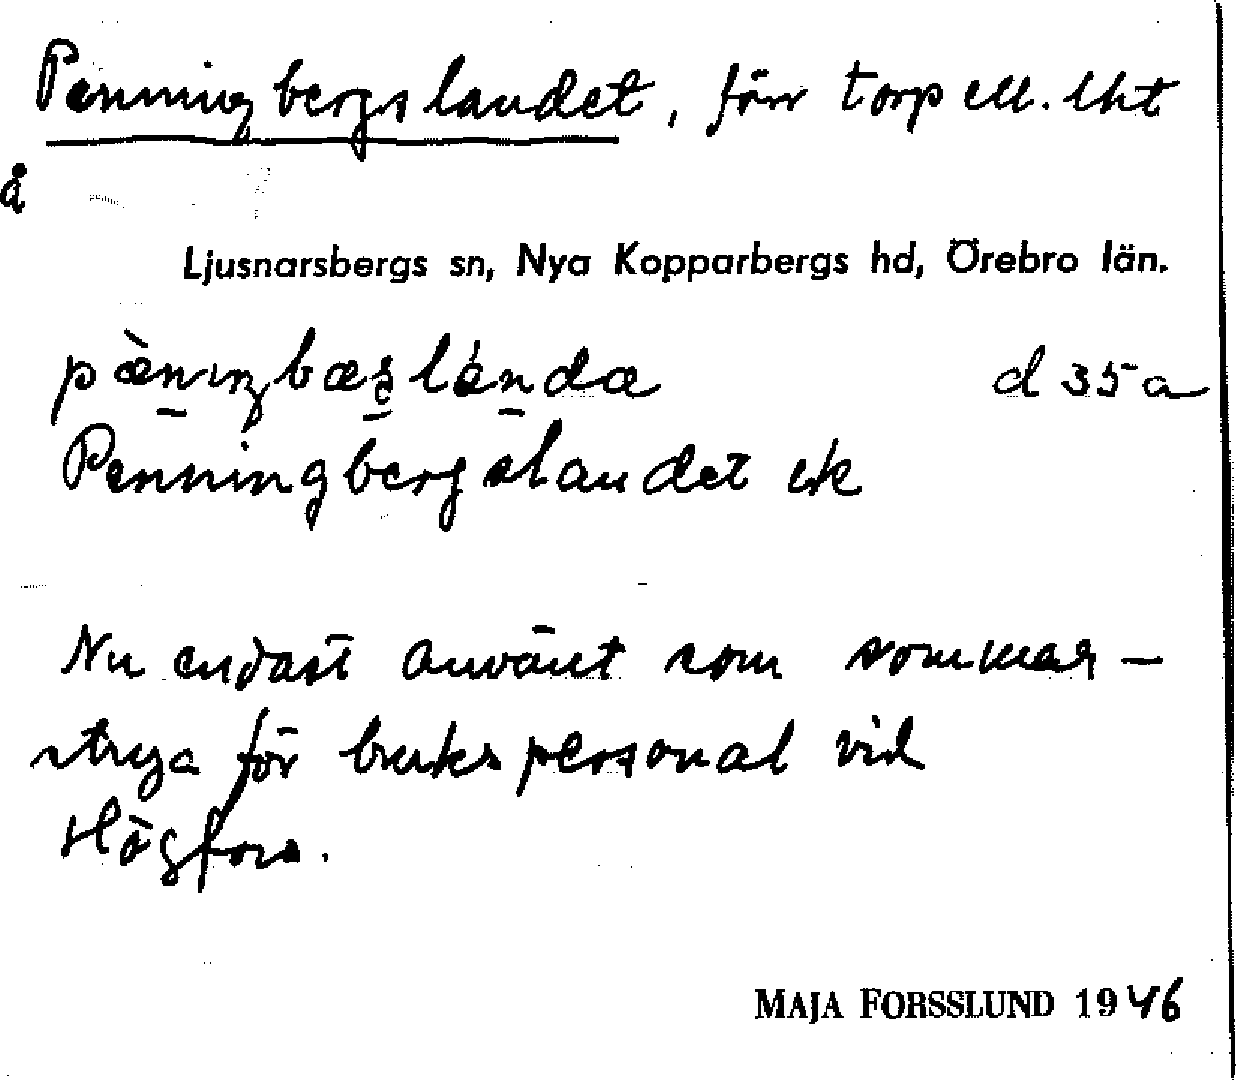 Penningbergslandet, förr torp ell. lht
å
Ljusnarsbergs sn, Nya Kopparbergs hd, Örebro län.
d 35 a
Penningbergslandet ek
Nu endast använt som sommar-
stuga för brukspersonal vid
Högfors.
MAJA FORSSLUND 1946